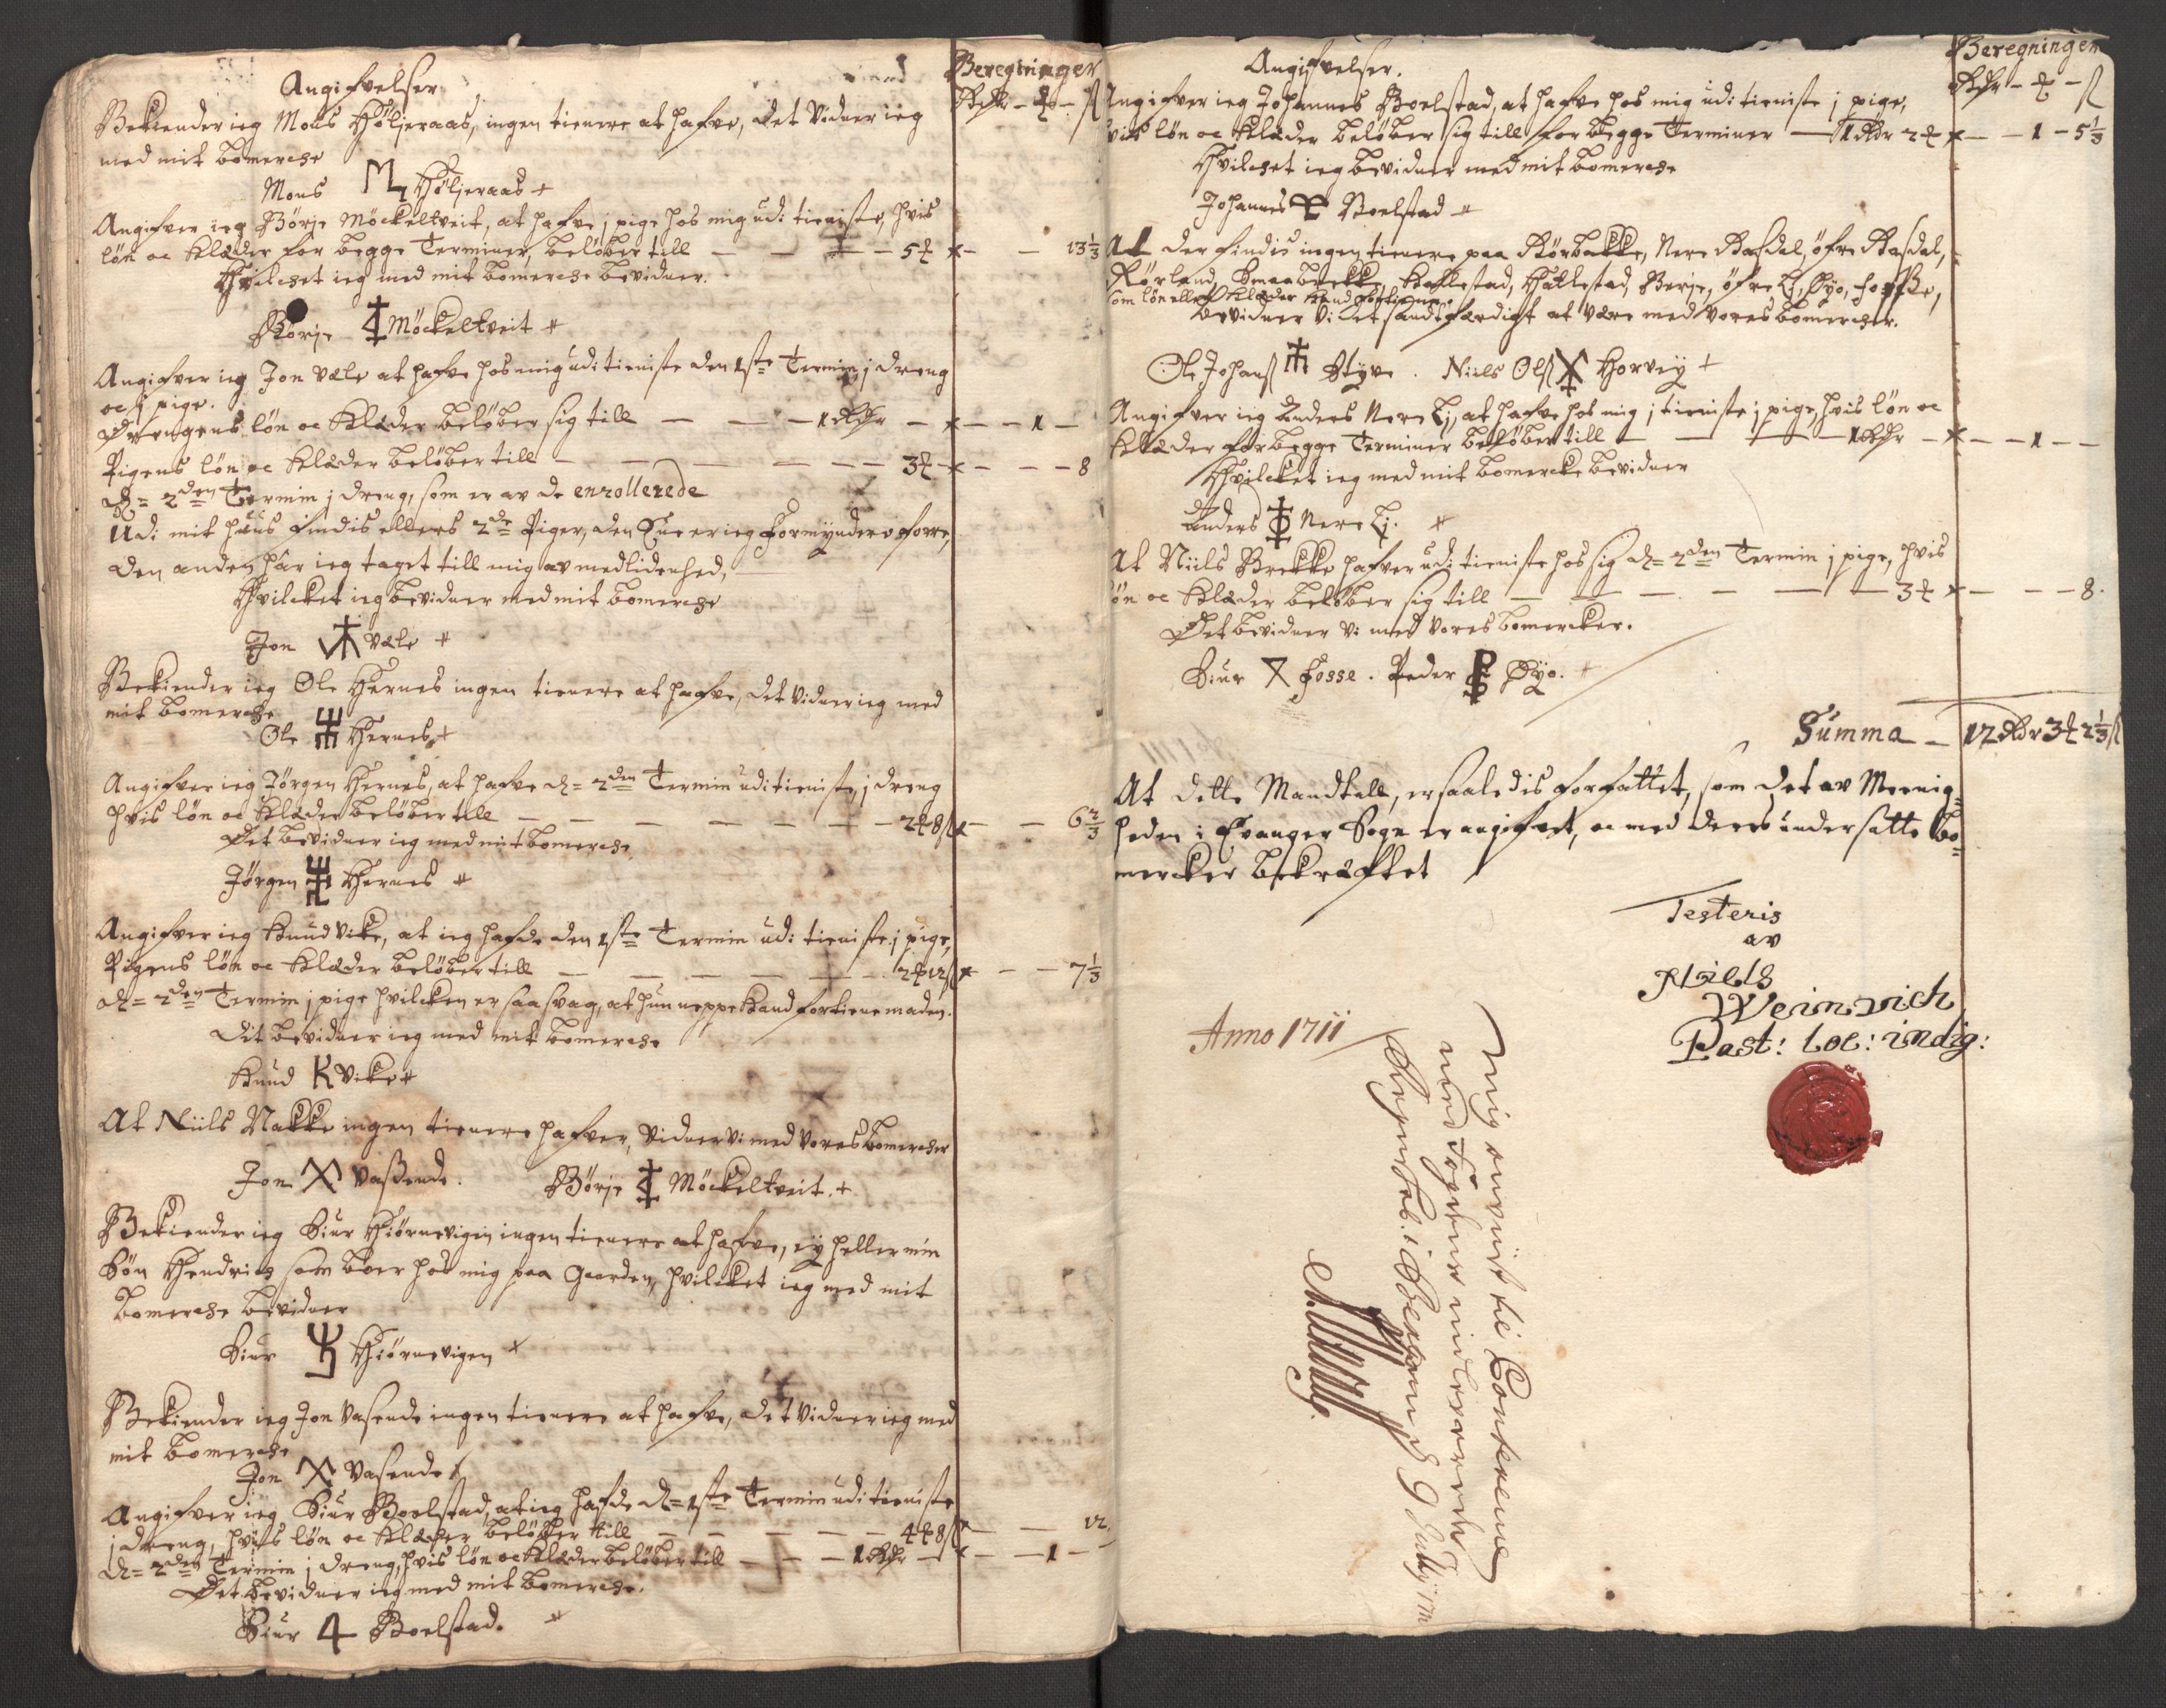 Angifvelser
Beregninger
Rdr - ℔ - ß
Bekiender ieg Mons Høljeraas, ingen tienere at hafve, det Vidner ieg
med mit bomercke
Mons Høljeraas
Angifver ieg Børje Møckeltveit, at hafve j pige hos mig udi tieniste, hvis
løn oc Klæder for begge Terminer, beløber till — — — 5 ℔ — — 13 1/3
Hvilcket ieg med mit bomercke bevidner.
Børje Møckeltveit
Angifver ieg Jon Væle at hafve hos mig udi tieniste den 1ste Termin j dreng
oc j pige.
Drengens løn oc Klæder beløber sig till — — — 1 Rdr — — — 1 —
Pigens løn oc Klæder beløber till — — — — — 3 ℔ — — — 8
d= 2den Termin j dreng, som er av de enrollerede
Udi mit huus findis ellers 2de Piger, den Eene er ieg Formyndere forre,
den anden hâr ieg taget till mig av medlidenhed,
Hvilcket ieg bevidner med mit bomercke
Jon Væle
Bekiender ieg Ole Hernes ingen tienere at hafve, det vidner ieg med
mit bomercke
Ole Hernes
Angifver ieg Jørgen Hernes, at hafve d= 2den Termin udi tieniste, j dreng
hvis løn oc Klæder beløber till — — — — — 2 ℔ 8 ß — — 6 2/3
Det bevidner ieg med mit bomercke
Jørgen Hernes
Angifver ieg Knud Vike, at ieg hafde den 1ste Termin udi tieniste j pige,
Pigens løn oc Klæder beløber till — — — — — 2 ℔ 12 ß — — 7 1/3
d= 2den Termin j pige hvilcken er saa svag, at hun neppe Kand fortiene maden.
Dit bevidner ieg med mit bomercke
Knud K Vike
At Niils Nakke ingen tienere hafver, vidner vi med vores bomercker
Jon Vaßende. Børje Møckeltveit.
Bekiender ieg Siur Hiørnevigen ingen tienere at hafve, ey heller min
Søn Hendrics som boer hos mig paa Gaarden, hvilcket ieg med mit
bomercke bevidner
Siur Hiørnevigen
Bekiender ieg Jon Vasende ingen tienere at hafve, det vidner ieg med
mit bomercke
Jon Vasende
Angifver ieg Siur Boelstad, at ieg hafde d= 1ste Termin udi tieniste
j dreng, hvis løn oc Klæder beløber till — — — — 4 ℔ 8 ß — — 12
d= 2den Termin j dreng, hvis løn oc Klæder beløber till — — — 1 Rdr — — — 1 —
Det bevidner ieg med mit bomercke.
Siur 4 Boelstad.
Angifvelser.
Beregninger
Rdr - ℔ - ß
Angifver ieg Johannes Boelstad, at hafve hos mig udi tieniste j pige,
hvis løn oc Klæder beløber sig till for begge Terminer — 1 Rdr 2 ℔ — — 1 - 5 1/3
Hvilcket ieg bevidner med mit bomercke
Johannes Boelstad
At der findis ingen tienere paa Nere Rasdal, øfre Rasdal,
Rørland, Smaabrekke, Hallestad, Berje, øfre Lj, Øyo, Foße,
som løn eller Klæder Kand fortiene,
bevidner Vi et sandferdigt at være med Vores bomercker.
Ole Johanß Styve. Niels Olß Horvey
Angifver ieg Anders Nere Lj, at hafve hos mig j tieniste j pige, hvis løn oc
Klæder for begge Terminer beløber till — — — — 1 Rdr — — — 1 — —
Hvilcket ieg med mit bomercke bevidner
Anders Nere Lj.
At Niils Brekke hafver udi tieniste hos sig d= 2den Termin j pige, hvis
løn oc Klæder beløber sig till — — — — — 3 ℔ — — — 8.
Det bevidner vi med vores bomercker.
Siur Fosse. Peder Øyo.
Summa — 12 Rdr 3 ℔ 2 1/3 ß
At dette Mandtall, er saaledis forfattet, som det av Meenig=
heden i Evanger Sogn er angifvet, oc med deres undersatte bo=
mercker bekræftet
Testeris
av
Niels
Weinwich
Past: loc: indig:
Anno 1711
mig anvist til Contrene
med Fogderne
i Bergen d 9 Julij 1711